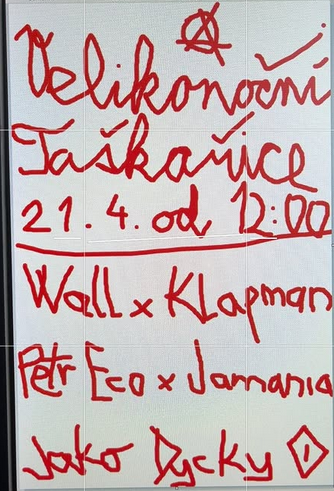 Velikonoční
Taškařice
21.4. od 12:00
Wall x Klapman
Petr Eco x Jamania
Jako Dycky